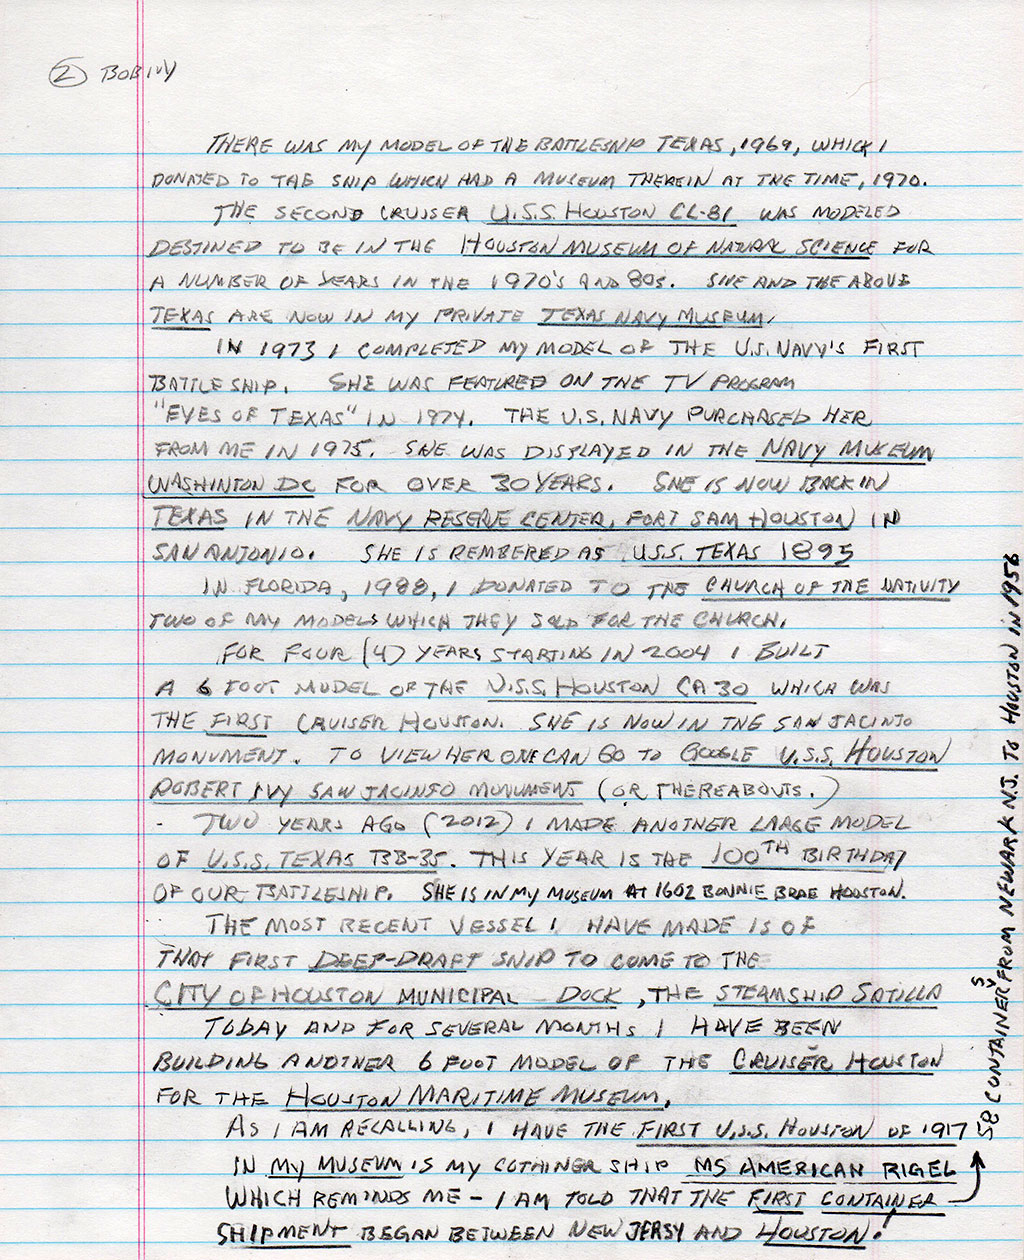 ② BOB IVY
THERE WAS MY MODEL OF THE BATTLESHIP TEXAS, 1969, WHICH I
DONATED TO THE SHIP WHICH HAD A MUSEUM THEREIN AT THE TIME, 1970.
THE SECOND CRUISER U.S.S. HOUSTON CL-81 WAS MODELED
DESTINED TO BE IN THE HOUSTON MUSEUM OF NATURAL SCIENCE FOR
A NUMBER OF YEARS IN THE 1970'S AND 80S. SHE AND THE ABOVE
TEXAS ARE NOW IN MY PRIVATE TEXAS NAVY MUSEUM.
IN 1973 I COMPLETED MY MODEL OF THE U.S. NAVY'S FIRST
BATTLESHIP. SHE WAS FEATURED ON THE TV PROGRAM
"EYES OF TEXAS" IN 1974. THE U.S. NAVY PURCHASED HER
FROM ME IN 1975. SHE WAS DISPLAYED IN THE NAVY MUSEUM
WASHINTON DC FOR OVER 30 YEARS. SHE IS NOW BACK IN
TEXAS IN THE NAVY RESERVE CENTER, FORT SAM HOUSTON IN
SAN ANTONIO. SHE IS REMBERED AS U.S.S. TEXAS 1895
IN FLORIDA, 1988, I DONATED TO THE CHURCH OF THE NATIVITY
TWO OF MY MODELS WHICH THEY SOLD FOR THE CHURCH.
FOR FOUR (4) YEARS STARTING IN 2004 I BUILT
A 6 FOOT MODEL OF THE U.S.S. HOUSTON CA 30 WHICH WAS
THE FIRST CRUISER HOUSTON. SHE IS NOW IN THE SAN JACINTO
MONUMENT. TO VIEW HER ONE CAN GO TO GOOGLE U.S.S. HOUSTON
ROBERT IVY SAN JACINTO MONUMENT (OR THEREABOUTS.)
TWO YEARS AGO (2012) I MADE ANOTHER LARGE MODEL
OF U.S.S. TEXAS BB-35. THIS YEAR IS THE 100TH BIRTHDAY
OF OUR BATTLESHIP. SHE IS IN MY MUSEUM AT 1602 BONNIE BRAE HOUSTON.
THE MOST RECENT VESSEL I HAVE MADE IS OF
THAT FIRST DEEP-DRAFT SHIP TO COME TO THE
CITY OF HOUSTON MUNICIPAL DOCK, THE STEAMSHIP SATILLA
TODAY AND FOR SEVERAL MONTHS I HAVE BEEN
BUILDING ANOTHER 6 FOOT MODEL OF THE CRUISER HOUSTON
FOR THE HOUSTON MARITIME MUSEUM.
AS I AM RECALLING, I HAVE THE FIRST U.S.S. HOUSTON OF 1917
IN MY MUSEUM IS MY COTHINER SHIP MS AMERICAN RIGEL
WHICH REMINDS ME - I AM TOLD THAT THE FIRST CONTAINER
SHIPMENT BEGAN BETWEEN NEW JERSY AND HOUSTON!
58 CONTAINERS FROM NEWARK N.J. TO HOUSTON IN 1956